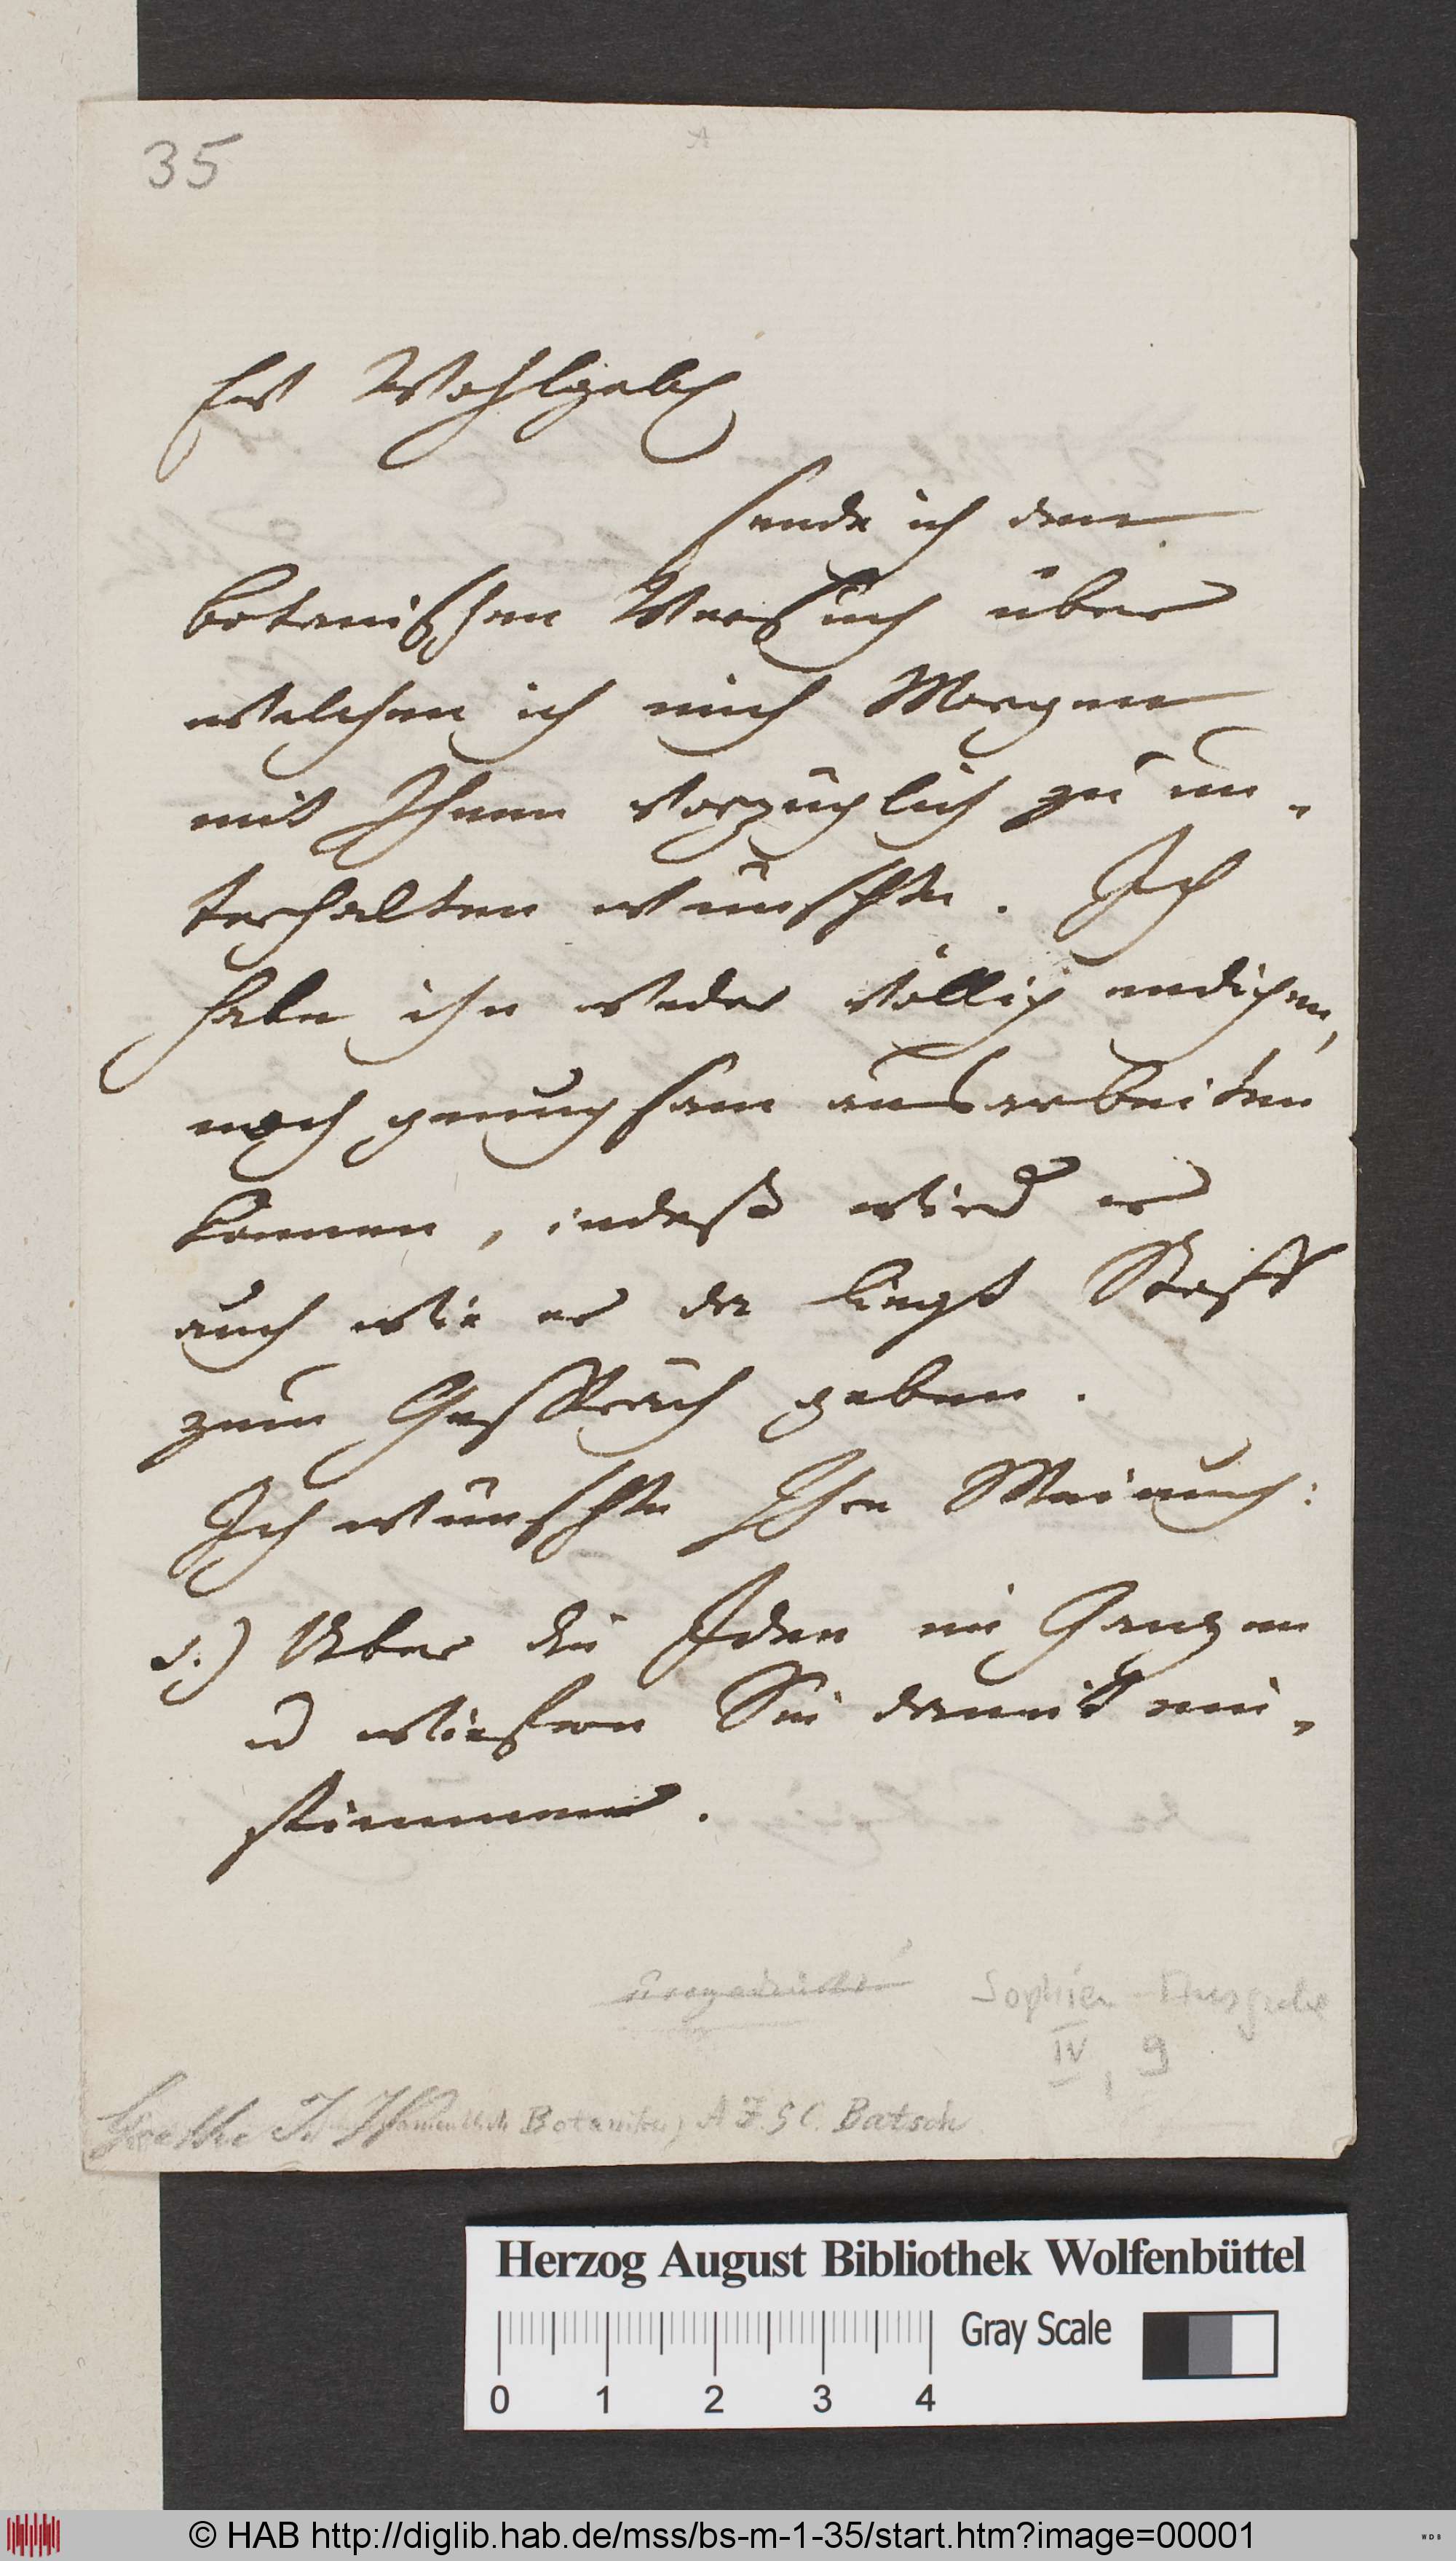 35
Ew Wohlgeb
sende ich den
botanischen Versuch über
welchen ich mich Morgen
mit Ihnen vorzüglich zu un-
terhalten wünschte. Ich
habe ihn weder völlig endigen,
noch genugsam ausarbeiten
können, indeß wird er
auch wie er da liegt Stoff
zum Gespräch geben.
Ich wünschte Ihre Meinung:
1.) Über die Idee im Ganzen
u wiefern Sie damit ein-
stimmen.
Sophien Ausgabe
IV, 9
Goethe J. W. Botaniker A J. G C. Batsch
Herzog August Bibliothek Wolfenbüttel
Gray Scale
0 1 2 3 4
© HAB http://diglib.hab.de/mss/bs-m-1-35/start.htm?image=00001
WDB